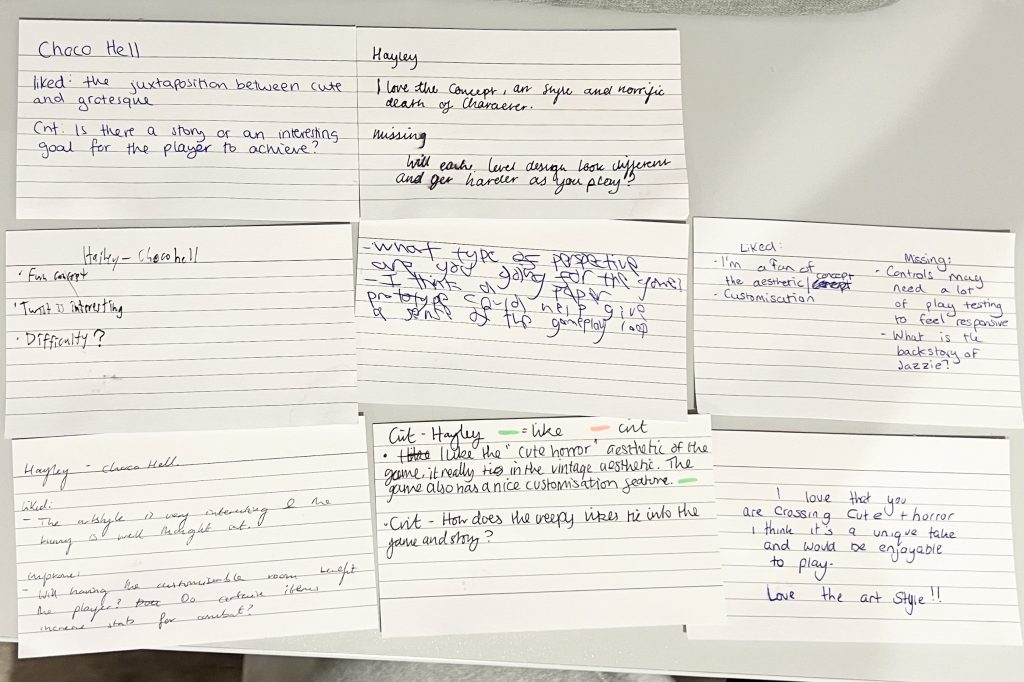 Choco Hell
liked: the juxtaposition between cute
and grotesque
Crit: Is there a story or an interesting
goal for the player to achieve?
Hayley
I love the concept, art style and horrific
death of character.
missing
Will each level design look different
and get harder as you play?
Hailey - Chocohell
• Fun concept
• Twist is interesting
• Difficulty?
- what type of perspective
are you going for the game?
- I think a paper
prototype could help give
a sense of the gameplay loop
Liked:
- I'm a fan of
the aesthetic/concept
- Customisation
Missing:
- Controls may
need a lot
of play testing
to feel responsive
- What is the
backstory of
Jazzie?
Hayley - Choco Hell.
liked:
- The artstyle is very interesting & the
bunny is well thought out.
improve:
- Will having the customisable room benefit
the player? Do certain items
increase stats for combat?
Crit - Hayley = like crit
• I like the "cute horror" aesthetic of the
game, it really ties in the vintage aesthetic. The
game also has a nice customisation feature.
• Crit - How does the creepy vibes tie into the
game and story?
I love that you
are crossing cute + horror
I think it's a unique take
and would be enjoyable
to play.
Love the art style!!